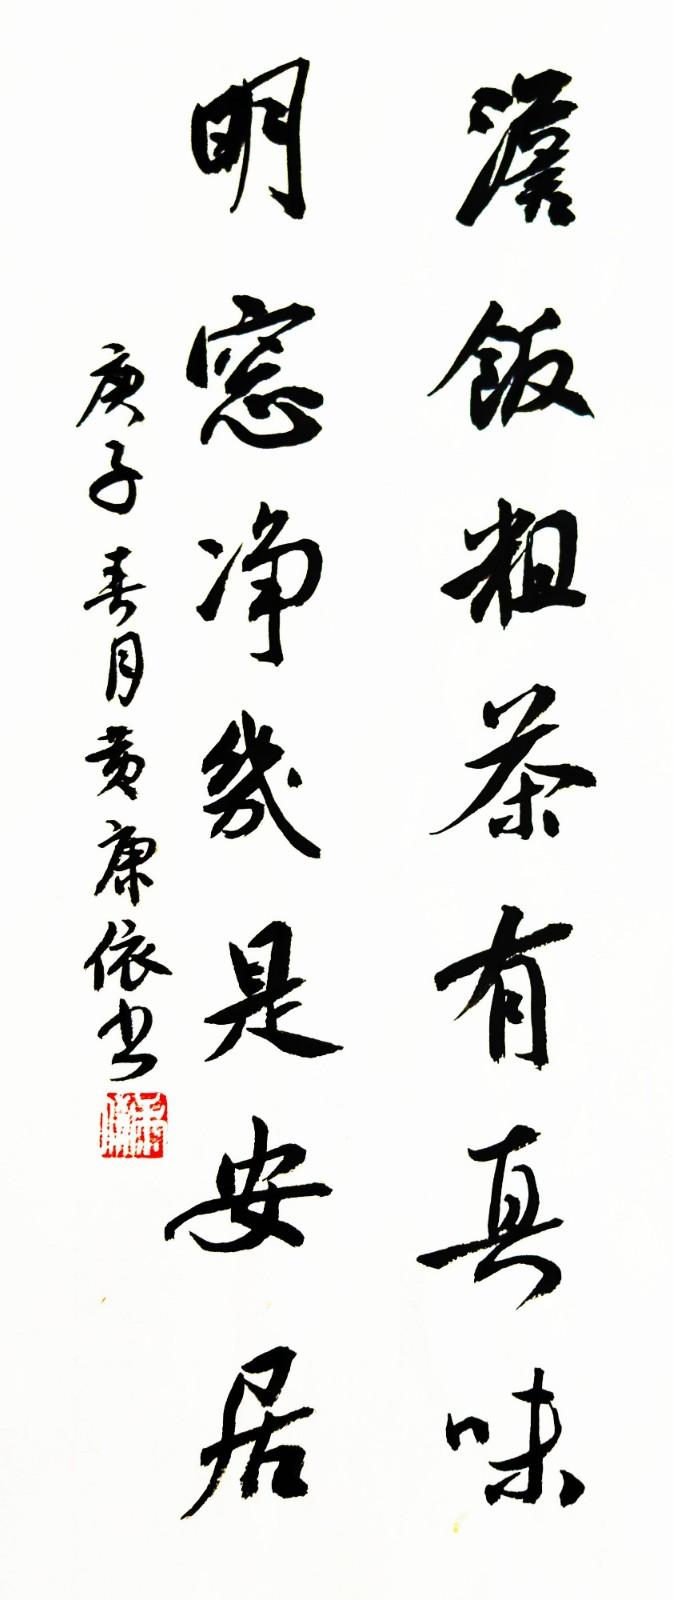 澹飯粗茶有真味
明窓净幾是安居
庚子春月黄康依书